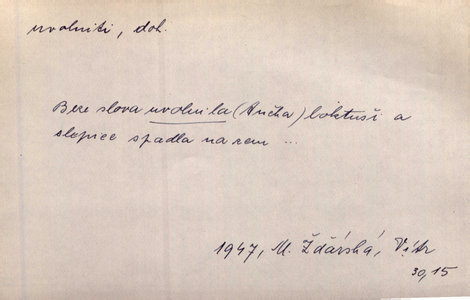 uvolniti, dok.
Beze slova uvolnila (Ančka) loktuši a
slepice spadla na zem ...
1947, M. Žďárská, Vítr
30,15